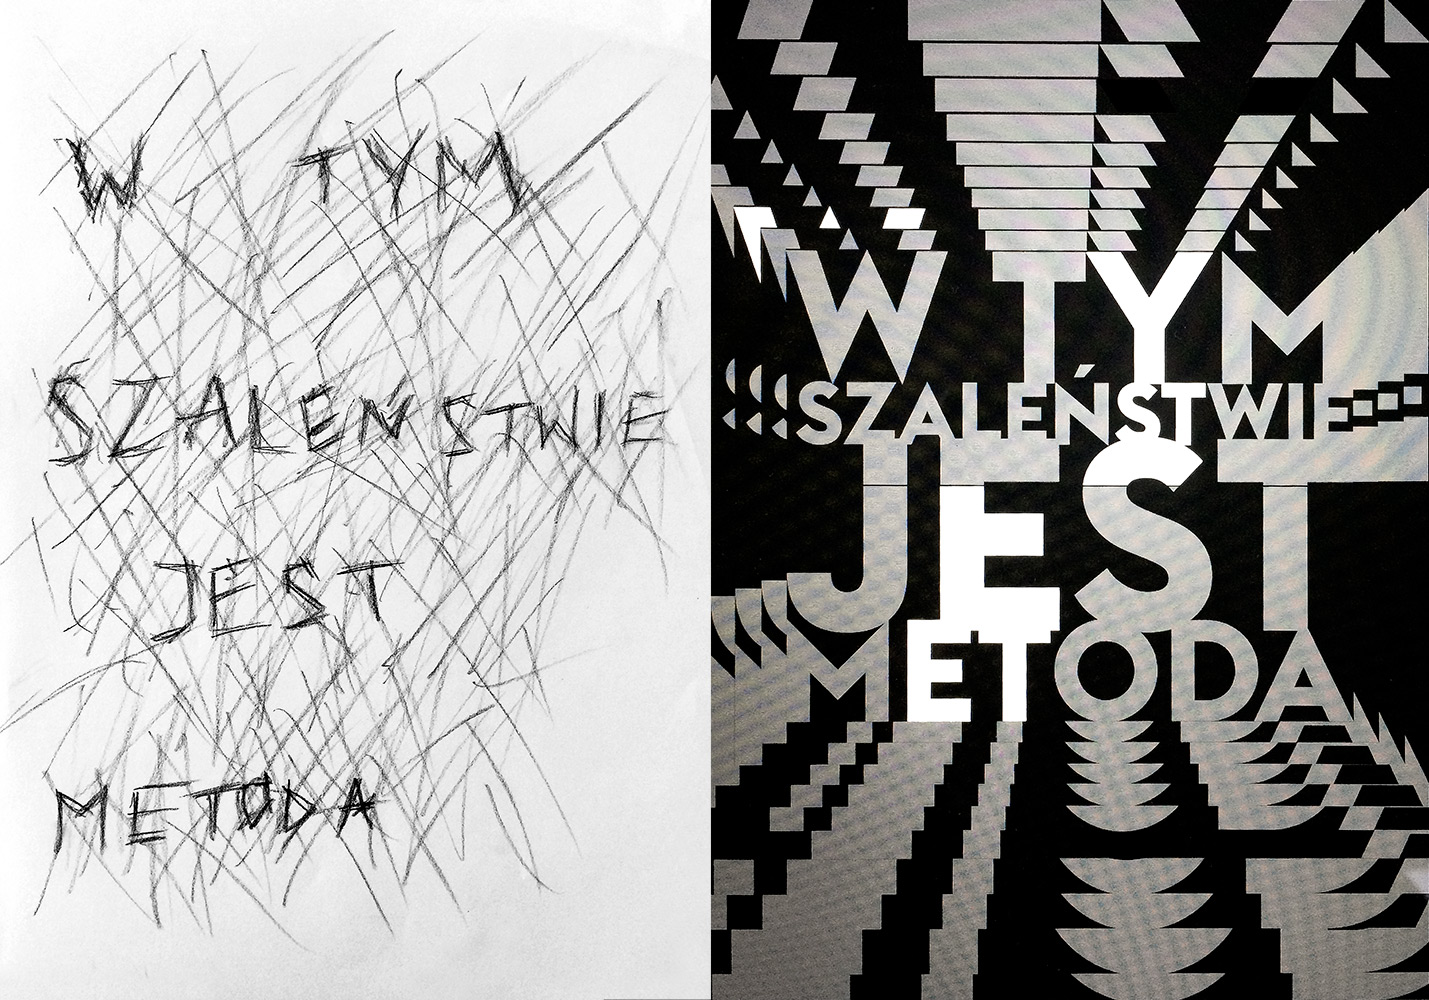 W TYM
SZALEŃSTWIE
JEST
METODA
W TYM
SZALEŃSTWIE
JEST
METODA